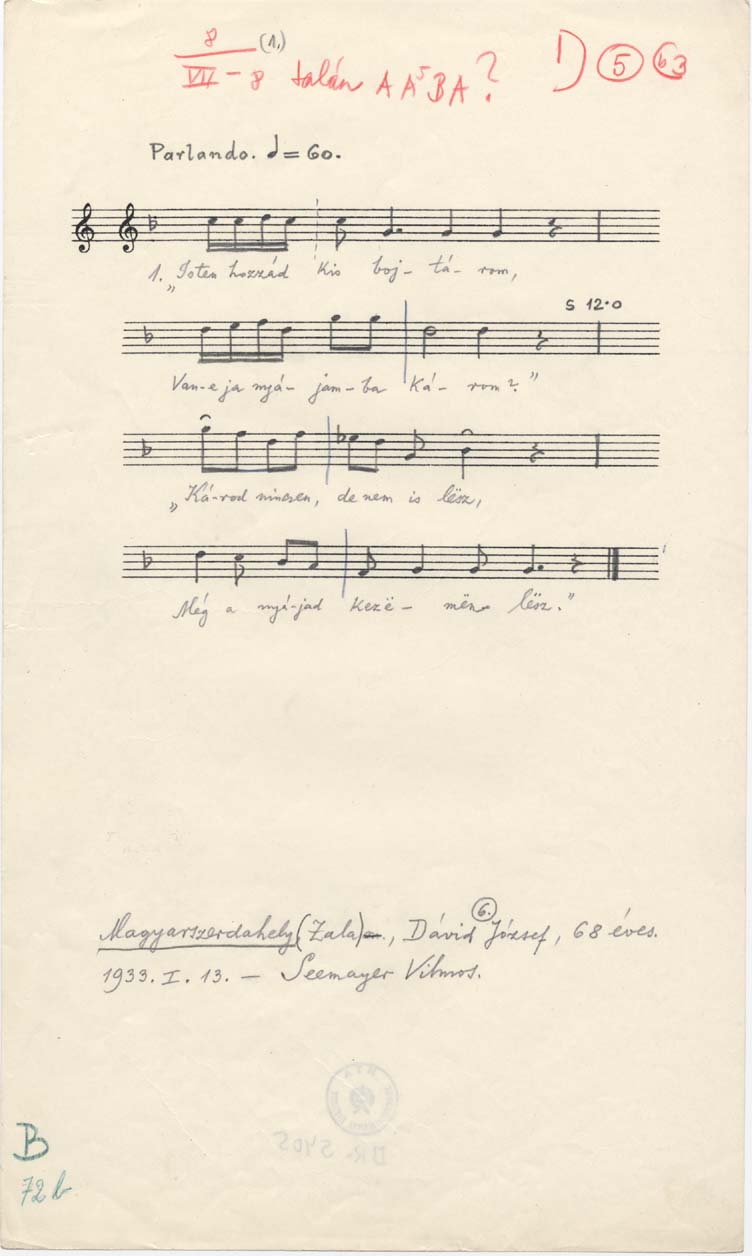 8 (1.)
VII – 8 talán A A⁵ B A? 1) 5 b3
Parlando. 𝅗𝅥 = 60.
1. „Isten hozzád kis boj- tá- rom,
S 12·0
Van-e ja nyá- jam-ba ká- rom?"
„Ká-rod nincsen, de nem is lësz,
Még a nyá-jad kezë- mën lësz."
6.
Magyarszerdahely (Zala), Dávid József, 68 éves.
1933. I. 13. — Seemayer Vilmos.
DR 5405
B
72 b